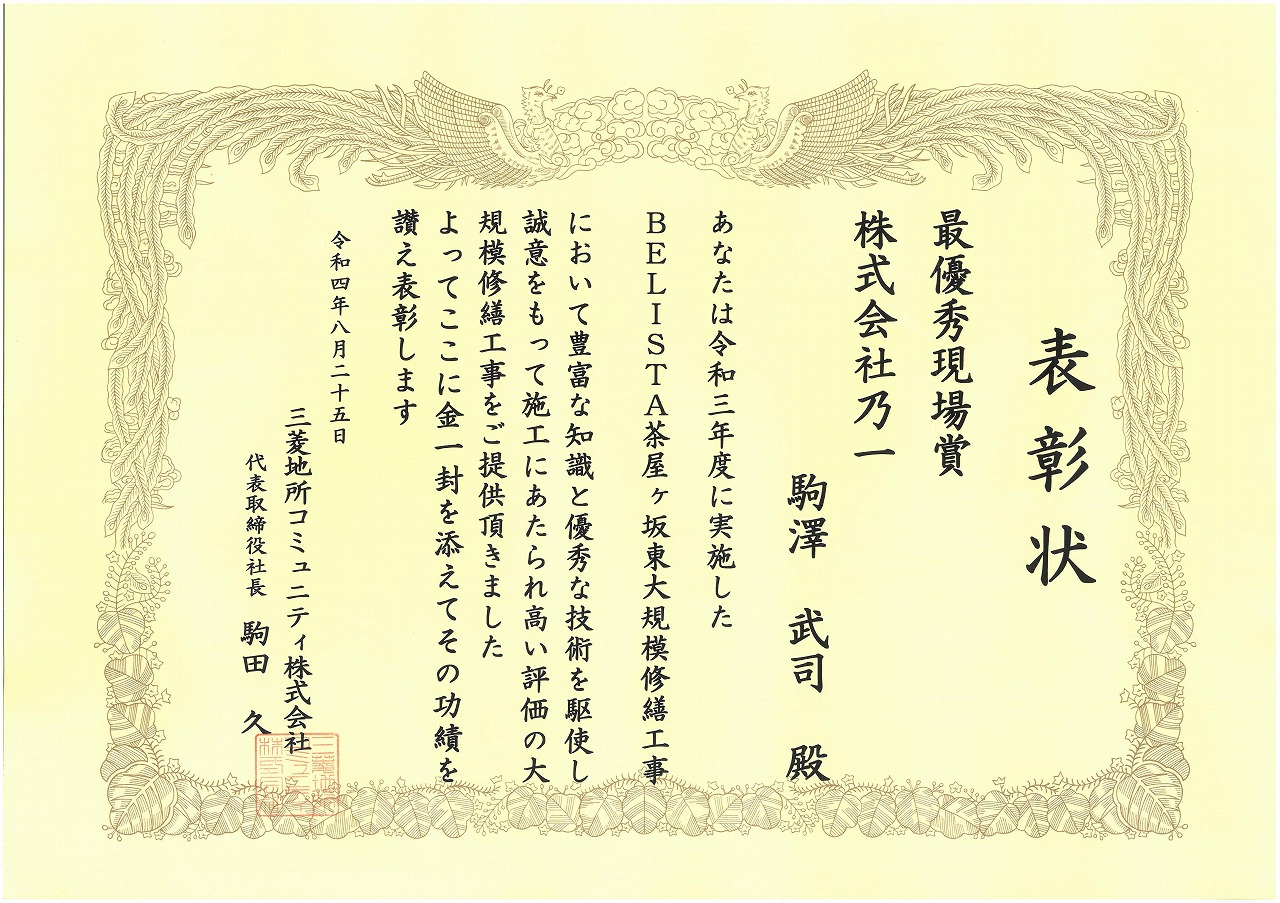 表彰状
最優秀現場賞
株式会社乃一
駒澤 武司 殿
あなたは令和三年度に実施した
BELISTA茶屋ヶ坂東大規模修繕工事
において豊富な知識と優秀な技術を駆使し
誠意をもって施工にあたられ高い評価の大
規模修繕工事をご提供頂きました
よってここに金一封を添えてその功績を
讃え表彰します
令和四年八月二十五日
三菱地所コミュニティ株式会社
代表取締役社長 駒田 久